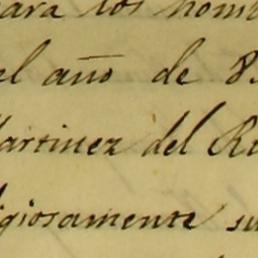 para los homb
el año de 8
Martinez del R
igiosamente su